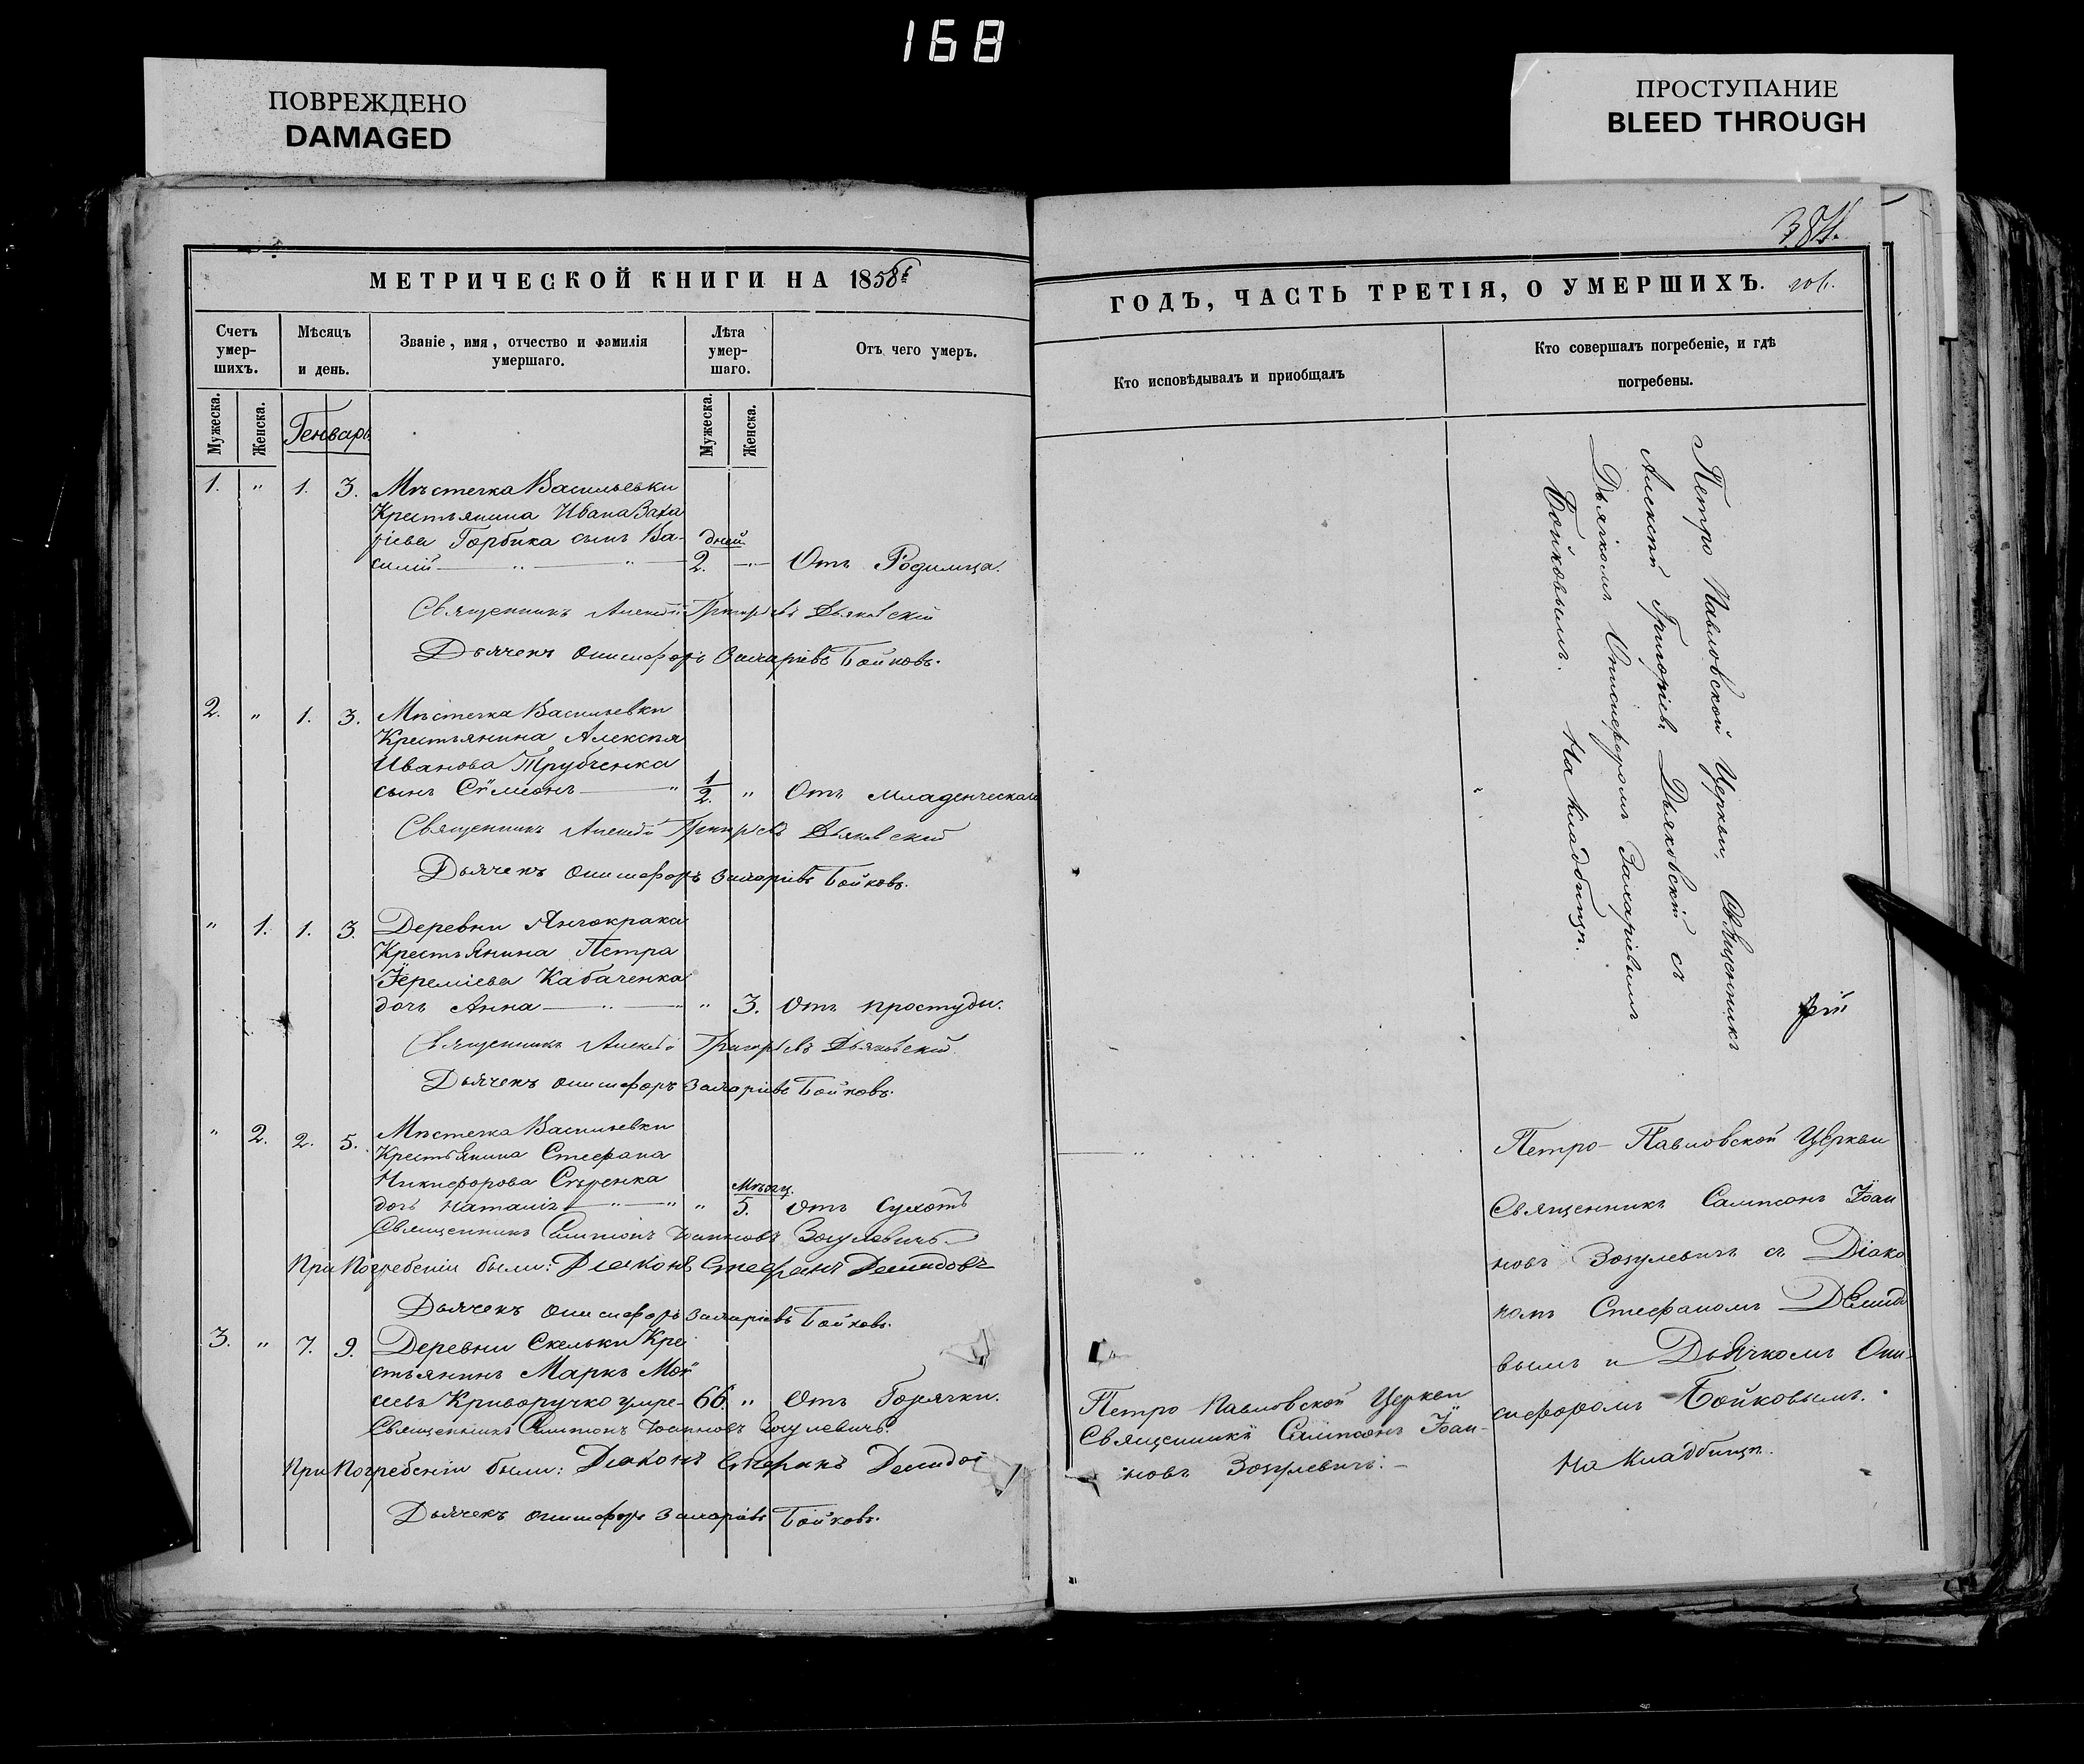 168
ПОВРЕЖДЕНО
DAMAGED
ПРОСТУПАНИЕ
BLEED THROUGH
384.
МЕТРИЧЕСКОЙ КНИГИ НА 1858й
Счетъ умер-шихъ.
Мѣсяцъ и день.
Званіе, имя, отчество и фамилія умершаго.
Лѣта умер-шаго.
Отъ чего умеръ.
Мужеска.
Женска.
Генварь
Мужеска.
Женска.
1. " 1. 3. Мѣстечка Васильевки
Крестьянина Ивана Заха
ріева Горбика сынъ Ва- дней
силій 2. " Отъ Родимца.
Священникъ Алексѣй Григоріевъ Дьяковскій
Дьячекъ Онисифоръ Захаріевъ Бойковъ.
2. " 1. 3. Мѣстечка Васильевки
Крестьянина Алексѣя
Иванова Трубченка
сынъ Сѷмеонъ " 1/2. " Отъ младенческаго
Священникъ Алексѣй Григоріевъ Дьяковскій
Дьячекъ Онисифоръ Захаріевъ Бойковъ.
" 1. 1. 3. Деревни Янчокрака
Крестьянина Петра
Іереміева Кабаченка
дочь Анна " " 3. Отъ простуды.
Священникъ Алексѣй Григоріевъ Дьяковскій
Дьячекъ Онисифоръ Захаріевъ Бойковъ.
" 2. 2. 5. Мѣстечка Васильевки
Крестьянина Стефана
Никифорова Сѣренка Мѣсяц.
дочь Наталія " " 5. Отъ Сухотъ
Священникъ Сампсонъ Іоанновъ Зозулевичъ
При Погребеніи были: Діаконъ Стефанъ Демидовъ
Дьячекъ Онисифоръ Захаріевъ Бойковъ.
3. " 7. 9. Деревни Скельки Кре
стьянинъ Маркъ Мой
сіевъ Криворучко умре- 66. " Отъ Горячки.
Священникъ Сампсонъ Іоанновъ Зозулевичъ.
При Погребеніи были: Діаконъ Стефанъ Демидо
Дьячекъ Онисифоръ Захаріевъ Бойковъ.
ГОДЪ, ЧАСТЬ ТРЕТІЯ, О УМЕРШИХЪ.
Кто исповѣдывалъ и приобщалъ
Кто совершалъ погребеніе, и гдѣ погребены.
Петро Павловской Церкви, Священникъ
Алексѣй Григоріевъ Дьяковскій съ
Дьячкомъ Онисифоромъ Захаріевымъ
Бойковымъ. На кладбищѣ.
рій
Петро-Павловской Церкви
Священникъ Сампсонъ Іоан
новъ Зозулевичъ съ Діако
номъ Стефаномъ Демидо
вымъ и Дьячкомъ Они-
сифоромъ Бойковымъ.
На кладбищѣ.
Петро Павловской Церкви
Священникъ Сампсонъ Іоан-
новъ Зозулевичъ.